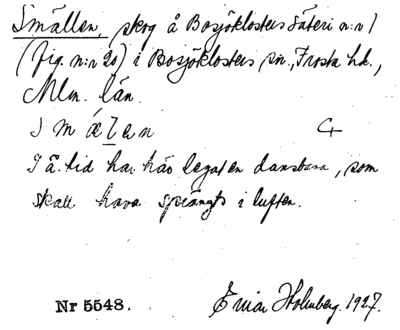 Smällen, skog å Bosjöklosters säteri n:r 1
(fig. n:r 20) i Bosjöklosters sn., Frosta hd.,
Mlm. län.
I å. tid har här legat en dansbana, som
skall hava sprängts i luften.
Nr 5548. Einar Holmberg. 1927.